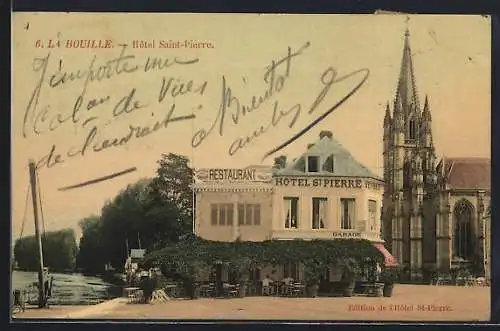 6. LA BOUILLE. — Hôtel Saint-Pierre.
J'emporte une
de Vues
de l'endroit
Bientôt
RESTAURANT
HÔTEL St PIERRE
GARAGE
Edition de l'Hôtel St-Pierre.